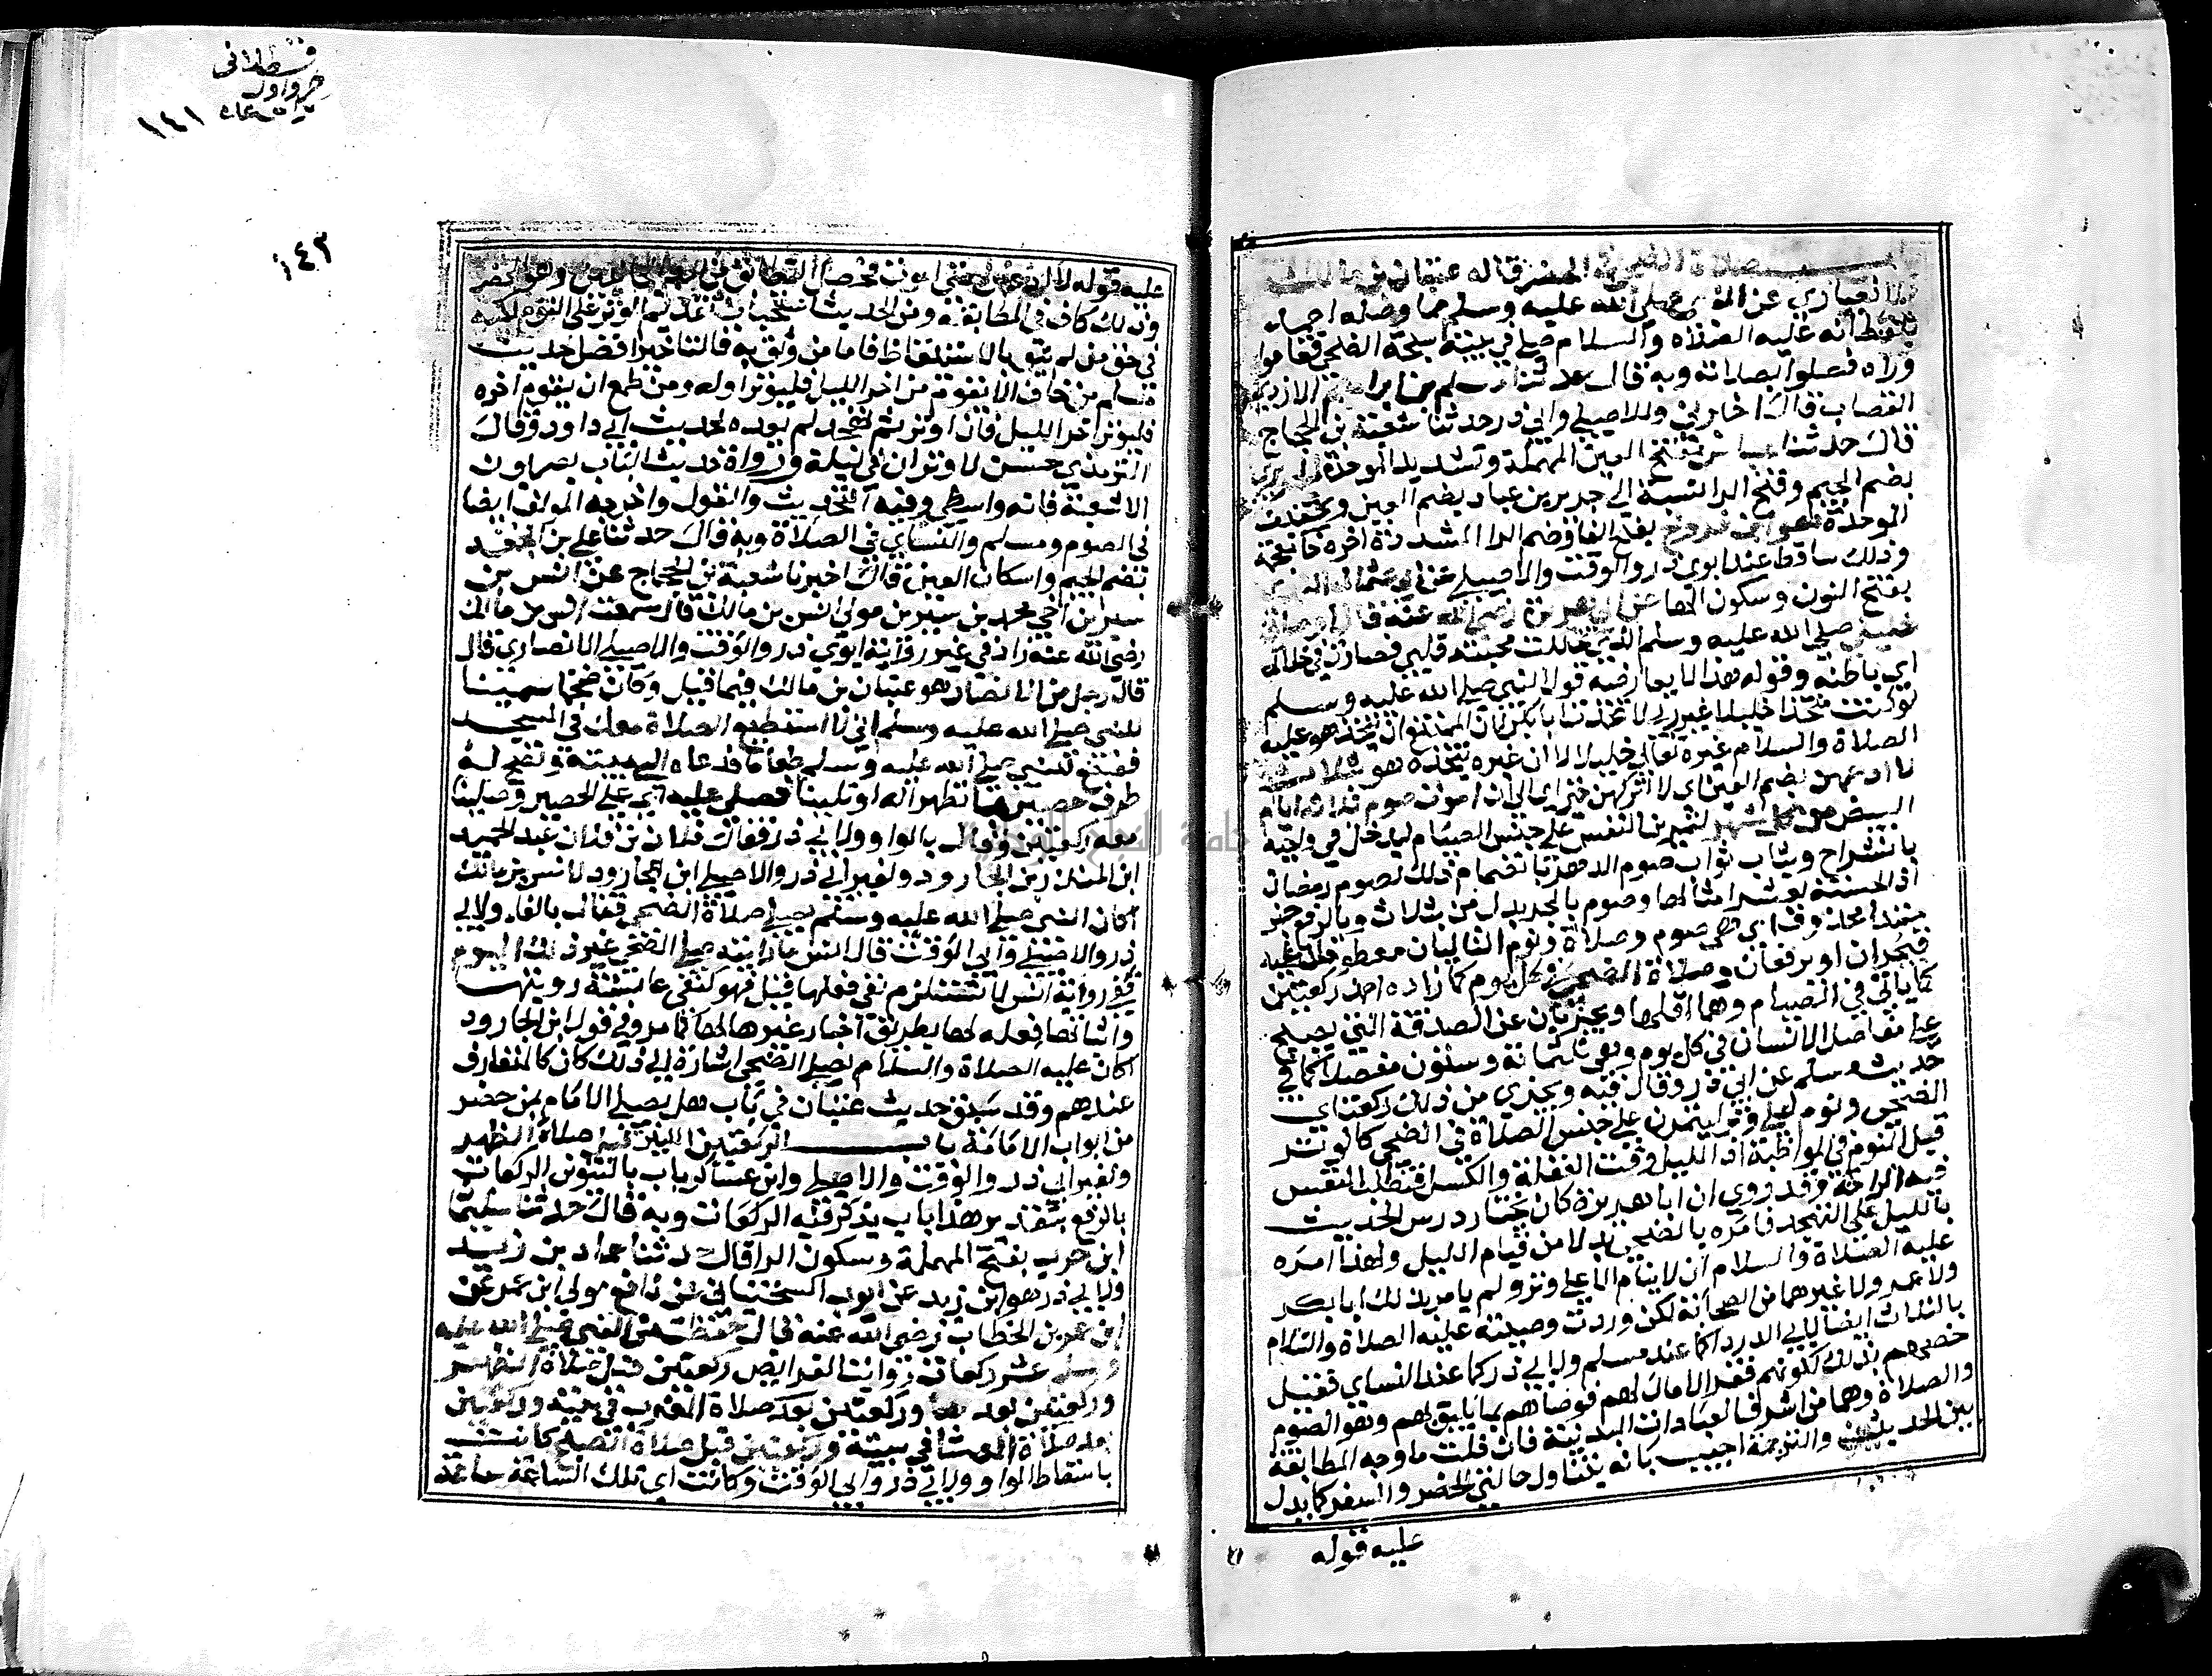 صلاة الضحى في الحضر قاله عتبان بن مالك
الانصاري عن النبي صلى الله عليه وسلم مما وصله احمد
بلفظ انه عليه الصلاة والسلام صلى في بيته سبحة الضحى فقاموا
وراه فصلوا بصلاته وبه قال حدثنا مسلم بن ابراهيم الازدي
القصاب قال اخبرني وللاصيلي وابي ذر حدثنا شعبة بن الحجاج
قال حدثنا عباس بفتح العين المهملة وتشديد الموحدة الجريري
بضم الجيم وفتح الرا نسبة الى جرير بن عباد بضم العين وتخفيف
الموحدة هو ابن فروخ بفتح الفا وضم الرا المشددة اخره خا معجمة
وذلك ساقط عند ابوي ذر والوقت والاصيلي عن ابي عثمان النهدي
بفتح النون وسكون الها عن ابي هريرة رضي الله عنه قال اوصاني
خليلي صلى الله عليه وسلم الذي تخللت محبته قلبي فصارت في خلاله
اي باطنه وقوله هذا لا يعارضه قول النبي صلى الله عليه وسلم
لو كنت متخذا خليلا غير ربي لاتخذت ابا بكر لان الممتنع ان يتخذ هو عليه
الصلاة والسلام غيره تعالى خليلا لا ان غيره يتخذه هو بثلاث
لا ادعهن بضم العين اي لا اتركهن حتى اي الى ان اموت صوم ثلاثة ايام
البيض من كل شهر لتمرين النفس على جنس الصيام ليدخل في واجبه
بانشراح ويثاب ثواب صوم الدهر بانضمام ذلك لصوم رمضان
اذ الحسنة بعشر امثالها وصوم بالجر بدل من ثلاث وبالرفع خبر
مبتدا محذوف اي هي صوم وصلاة ونوم التاليان معطوفان عليه
فيجران او يرفعان وصلاة الضحى في كل يوم كما زاده احمد ركعتين
كما ياتي في الصيام وهما اقلها ويجزيان عن الصدقة التي تصبح
على مفاصل الانسان في كل يوم وهي ثلثمائة وستون مفصلا كما في
حديث مسلم عن ابي ذر وقال فيه ويجزي من ذلك ركعتا
الضحى ونوم على وتر ليتمرن على جنس الصلاة في الضحى كالوتر
قبل النوم في المواظبة اذ الليل وقت الغفلة والكسل فتطلب النفس
فيه الراحة وقد روي ان ابا هريرة كان يختار درس الحديث
بالليل على التهجد فامره بالضحى بدلا من قيام الليل ولهذا امره
عليه الصلاة والسلام ان لا ينام الا على وتر ولم يامر بذلك ابا بكر
ولا عمر ولا غيرهما من الصحابة لكن وردت وصيته عليه الصلاة والسلام
بالثلاث ايضا لابي الدردا كما عند مسلم ولابي ذر كما عند النساي فقيل
خصهم بذلك لكونهم فقرا لا مال لهم فوصاهم بما يليق بهم وهو الصوم
والصلاة وهما من اشرف العبادات البدنية فان قلت ما وجه المطابقة
بين الحديث والترجمة اجيب بانه يتناول حالتي الحضر والسفر كما يدل
عليه قوله
قسطلاني
جزو اول
١٤١
١٤٢
عليه قوله لا ادعهن حتى اموت فحصل التطابق من احد الجانبين وهو الحضر
وذلك كاف في المطابقة ومن الحديث استحباب تقديم الوتر على النوم لكنه
في حق من لم يثق بالاستيقاظ فاما من وثق به فالتاخير افضل لحديث
مسلم من خاف ان لا يقوم من اخر الليل فليوتر اوله ومن طمع ان يقوم اخره
فليوتر اخر الليل فان اوتر ثم تهجد لم يعده لحديث ابي داود وقال
الترمذي حسن لا وتران في ليلة ورواة حديث الباب بصريون
الا شعبة فانه واسطي وفيه التحديث والقول واخرجه المولف ايضا
في الصوم ومسلم والنساي في الصلاة وبه قال حدثنا علي بن الجعد
بفتح الجيم واسكان العين قال اخبرنا شعبة بن الحجاج عن انس بن
سيرين اخي محمد بن سيرين مولى انس بن مالك قال سمعت انس بن مالك
رضي الله عنه زاد في غير رواية ابوي ذر والوقت والاصيلي الانصاري قال
قال رجل من الانصار هو عتبان بن مالك فيما قيل وكان ضخما سمينا
للنبي صلى الله عليه وسلم اني لا استطيع الصلاة معك في المسجد
فصنع للنبي صلى الله عليه وسلم طعاما فدعاه الى بيته ونضح له
طرف حصير بما تطهيرا له او تليينا فصلى عليه اي على الحصير وصلينا
معه ركعتين وقال بالواو ولابي ذر فقال فلان بن فلان عبد الحميد
ابن المنذر بن الجارود ولغير ابي ذر والاصيلي ابن الجارود لانس بن مالك
اكان النبي صلى الله عليه وسلم يصلي صلاة الضحى فقال بالفاء ولابي
ذر والاصيلي وابي الوقت قال انس ما رايته صلى الضحى غير ذلك اليوم
فنفي رواية انس لا تستلزم نفي فعلها قبل فهو كنفي عائشة رويتها
واثباتها فعله لها بطريق اخبار غيرها لها كما مر وفي قول ابن الجارود
اكان عليه الصلاة والسلام يصلي الضحى اشارة الى ذلك كان كالمتعارف
عندهم وقد سبق حديث عتبان في باب هل يصلي الامام بمن حضر
من ابواب الامامة باب الركعتين اللتين قبل صلاة الظهر
ولغير ابي ذر والوقت والاصيلي وابن عساكر باب بالتنوين الركعات
بالرفع بتقدير هذا باب يذكر فيه الركعات وبه قال حدثنا سليمان
ابن حرب بفتح المهملة وسكون الرا قال حدثنا حماد بن زيد
ولابي ذر هو ابن زيد عن ايوب السختياني عن نافع مولى ابن عمر عن
ابن عمر بن الخطاب رضي الله عنه قال حفظت من النبي صلى الله عليه
وسلم عشر ركعات رواتب الفرايض ركعتين قبل صلاة الظهر
وركعتين بعدها وركعتين بعد صلاة المغرب في بيته وركعتين
بعد صلاة العشا في بيته وركعتين قبل صلاة الصبح كانت
باسقاط الواو ولابي ذر وابي الوقت وكانت اي تلك الساعة ساعة